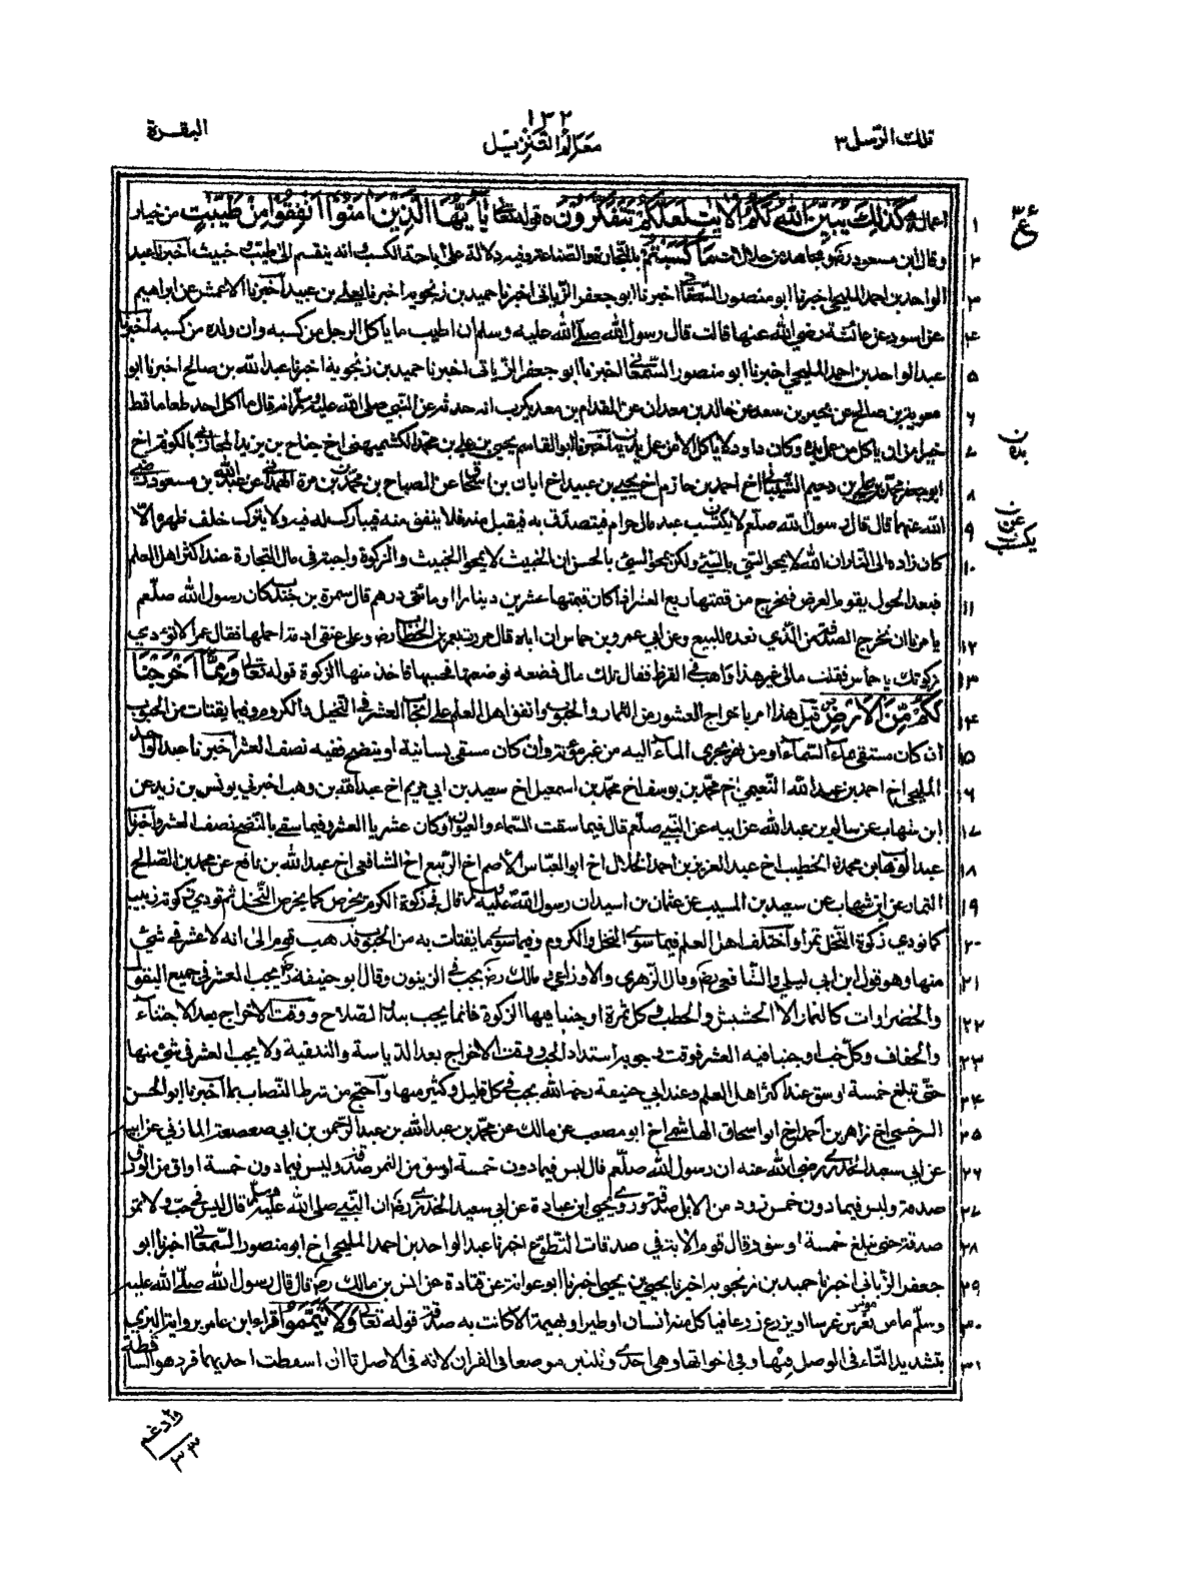 ١٣٢
تلك الرسل ٣
معالم التنزيل
البقرة
اعماله كَذٰلِكَ يُبَيِّنُ اللّٰهُ لَكُمُ الْاٰيٰتِ لَعَلَّكُمْ تَتَفَكَّرُوْنَ ه قوله تعالى يٰٓاَيُّهَا الَّذِيْنَ اٰمَنُوْٓا اَنْفِقُوْا مِنْ طَيِّبٰتِ من خيار
وقال ابن مسعود رض ومجاهد من حلالات مَا كَسَبْتُمْ بالتجارة والصناعة وفيه دلالة على اباحة الكسب وانه ينقسم الى طيب وخبيث اخبرنا عبد
الواحد بن احمد المليحي اخبرنا ابو منصور السمعاني اخبرنا ابو جعفر الرياني اخبرنا حميد بن زنجويه اخبرنا يعلى بن عبيد اخبرنا الاعمش عن ابراهيم
عن اسود عن عائشة رضي الله عنها قالت قال رسول الله صلى الله عليه وسلم ان اطيب ما ياكل الرجل من كسبه وان ولده من كسبه اخبرنا
عبد الواحد بن احمد المليحي اخبرنا ابو منصور السمعاني اخبرنا ابو جعفر الرياني اخبرنا حميد بن زنجويه اخبرنا عبد الله بن صالح اخبرنا ابو
معوية بن صالح عن بحير بن سعد عن خالد بن معدان عن المقدام بن معديكرب انه حدثه عن النبي صلى الله عليه وسلم انه قال ما اكل احد طعاما قط
خيرا من ان ياكل من عمل يده وكان داود لا ياكل الا من عمل يديه اخبرنا ابو القاسم يحيى بن علي بن محمد الكشميهني اخ جناح بن يزيد المحاربي بالكوفة اخ
ابو جعفر محمد بن علي بن دحيم الشيباني اخ احمد بن حازم اخ يحيى بن عبيد اخ ابان بن اسحاق عن الصباح بن محمد بن مرة الهمداني عن عبد الله بن مسعود رضي
الله عنهما قال قال رسول الله صلعم لا يكتسب عبد مال حرام فيتصدق به فيقبل منه فلا ينفق منه فيبارك له فيه ولا يترك خلف ظهره الا
كان زاده الى النار ان الله لا يمحو السيئ بالسيئ ولكن يمحو السيئ بالحسن ان الخبيث لا يمحو الخبيث والزكوة واجبة في مال التجارة عند اكثر اهل العلم
فبعد الحول يقوم العرض فيخرج من قيمتها ربع العشر اذا كان قيمتها عشرين دينارا او مائتي درهم قال سمرة بن جندب كان رسول الله صلعم
يامرنا ان نخرج الصدقة من الذي نعده للبيع وعن ابي عمرو بن حماس ان اباه قال مررت بعمر بن الخطاب رض وعلى عنقي ادمة احملها فقال عمر الا تؤدي
زكوتك يا حماس فقلت مالي غير هذا واهب في القرظ فقال ذلك مال فضعه فوضعها فحسبها فاخذ منها الزكوة قوله تعالى وَمِمَّآ اَخْرَجْنَا
لَكُمْ مِّنَ الْاَرْضِ قيل هذا امر باخراج العشور من الثمار والحبوب واتفق اهل العلم على ايجاب العشر في النخيل والكروم وفيما يقتات من الحبوب
ان كان مسقي بماء السماء او من نهر يجري الماء اليه من غير مؤنة وان كان مسقى بسانية او بنضح ففيه نصف العشر اخبرنا عبد الواحد
المليحي اخ احمد بن عبد الله النعيمي اخ محمد بن يوسف اخ محمد بن اسمعيل اخ سعيد بن ابي مريم اخ عبد الله بن وهب اخبرني يونس بن زيد عن
ابن شهاب عن سالم بن عبد الله عن ابيه عن النبي صلعم قال فيما سقت السماء والعيون او كان عشريا العشر وفيما سقي بالنضح نصف العشر واخبرنا
عبد الوهاب بن محمد الخطيب اخ عبد العزيز بن احمد الخلال اخ ابو العباس الاصم اخ الربيع اخ الشافعي اخ عبد الله بن نافع عن محمد بن الصالح
التمار عن ابن شهاب عن سعيد بن المسيب عن عثمان بن اسيد ان رسول الله صلى الله عليه وسلم قال في زكوة الكرم يخرص كما يخرص النخل ثم تودي زكوته زبيبا
كما تودي زكوة النخل تمرا واختلف اهل العلم فيما سوى النخل والكروم وفيما سوى ما يقتات به من الحبوب فذهب قوم الى انه لا عشر في شئ
منها وهو قول ابن ابي ليلى والشافعي رض وقال الزهري والاوزاعي ومالك رض يجب في الزيتون وقال ابو حنيفة رح يجب العشر في جميع البقول
والخضراوات كالثمار الا الحشيش والحطب وكل ثمرة اوجبنا فيها الزكوة فانما يجب ببدو الصلاح ووقت الاخراج بعد الاجتناء
والجفاف وكل حب اوجبنا فيه العشر فوقت وجوبه اشتداد الحب ووقت الاخراج بعد الدياسة والتنقية ولا يجب العشر في شئ منها
حتى تبلغ خمسة اوسق عند اكثر اهل العلم وعند ابي حنيفة رحمه الله يجب في كل قليل وكثير منها واحتج من شرط النصاب بما اخبرنا ابو الحسن
السرخسي اخ زاهر بن احمد اخ ابو اسحاق الهاشمي اخ ابو مصعب عن مالك عن محمد بن عبد الله بن عبد الرحمن بن ابي صعصعة المازني عن ابيه
عن ابي سعيد الخدري رضي الله عنه ان رسول الله صلعم قال ليس فيما دون خمسة اوسق من التمر صدقة وليس فيما دون خمسة اواق من الورق
صدقة وليس فيما دون خمس ذود من الابل صدقة وروى يحيى ابن عبادة عن ابي سعيد الخدري رض ان النبي صلى الله عليه وسلم قال ليس في حب ولا تمر
صدقة حتى تبلغ خمسة اوسق وقال قوم الاية في صدقات التطوع اخبرنا عبد الواحد بن احمد المليحي اخ ابو منصور السمعاني اخبرنا ابو
جعفر الرياني اخبرنا حميد بن زنجويه اخبرنا يحيى بن يحيى اخبرنا ابو عوانة عن قتادة عن انس بن مالك رض قال قال رسول الله صلى الله عليه
وسلم ما من مؤمن يغرس غرسا او يزرع زرعا فيأكل منه انسان او طير او بهيمة الا كانت به صدقة قوله تعالى وَلَا تَيَمَّمُوا قراءة ابن عامر برواية البزي
بتشديد التاء في الوصل فيها وفي اخواتها وهي احدى وثلثين موضعا في القرآن لانه في الاصل تاآن اسقطت احديهما فرد هو الساقطة
وادغم